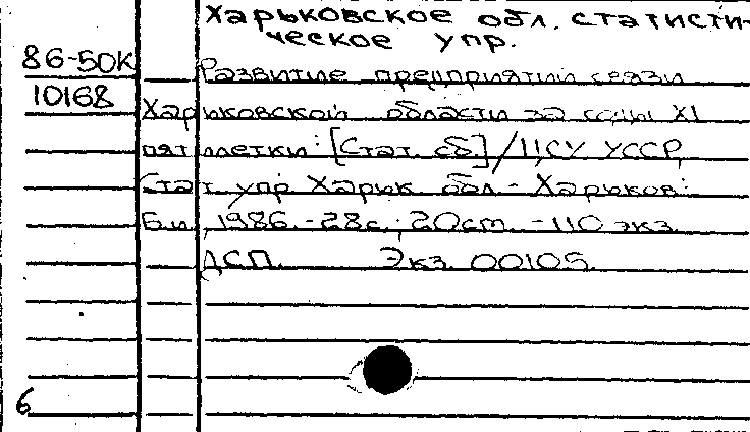 Харьковское обл. статисти-
ческое упр.
86-50К
10168
Развитие предприятий связи
Харьковской области за годы XI
пятилетки: [Стат. сб.] / ЦСУ УССР,
Стат. упр. Харьк. обл. - Харьков:
Б.и., 1986. - 28 с.; 20 см. - 110 экз.
ДСП. Экз. 00105.
6